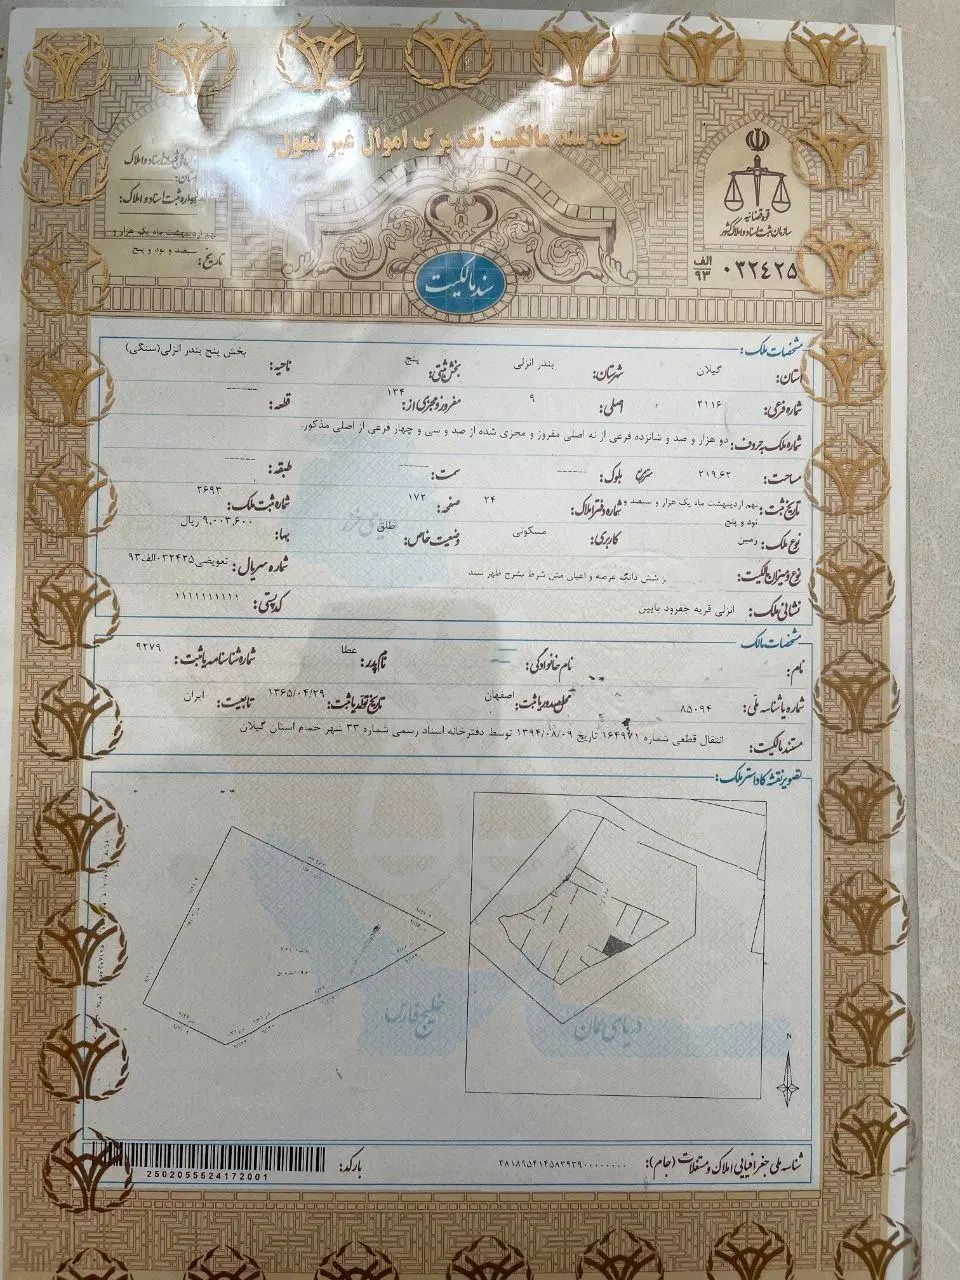 سند مالکیت تک برگ اموال غیر منقول
قوه قضائیه
سازمان ثبت اسناد و املاک کشور
اسناد و املاک
استان:
ثبت اسناد و املاک:
نهم اردیبهشت ماه یک هزار و
سیصد و نود و پنج
تاریخ:
الف
۹۳
۰۳۲۴۲۵
سند مالکیت
مشخصات ملک:
استان: گیلان شهرستان: بندر انزلی بخش ثبتی: پنج ناحیه: بخش پنج بندر انزلی(سنگی)
شماره فرعی: ۲۱۱۶ اصلی: ۹ مفروز و مجزی از: ۱۳۴ قطعه: ------
شماره ملک به حروف: دو هزار و صد و شانزده فرعی از نه اصلی مفروز و مجزی شده از صد و سی و چهار فرعی از اصلی مذکور.
مساحت: ۲۱۹.۶۲ مترمربع بلوک: ------ سمت: ------ طبقه: ------
تاریخ ثبت: نهم اردیبهشت ماه یک هزار و سیصد و نود و پنج شماره دفتر املاک: ۲۴ صفحه: ۱۷۲ شماره ثبت ملک: ۲۶۹۳
نوع ملک: زمین کاربری: مسکونی وضعیت خاص: طلق بها: ۹,۰۰۳,۶۰۰ ریال
نوع و میزان مالکیت: شش دانگ عرصه و اعیان متن شرط مشرح ظهر سند شماره سریال: تعویضی۰۳۲۴۲۵الف۹۳
نشانی ملک: انزلی قریه جفرود پایین کد پستی: ۱۱۱۱۱۱۱۱۱۱
مشخصات مالک
نام: نام خانوادگی: نام پدر: عطا شماره شناسنامه یا ثبت: ۹۲۷۹
شماره یا شناسه ملی: ۸۵۰۹۴ محل صدور یا ثبت: اصفهان تاریخ تولد یا ثبت: ۱۳۶۵/۰۴/۲۹ تابعیت: ایران
مستند مالکیت: انتقال قطعی شماره ۱۶۴۹۷۱ تاریخ ۱۳۹۴/۰۸/۰۹ توسط دفترخانه اسناد رسمی شماره ۳۳ شهر خمام استان گیلان
تصویر نقشه کاداستر ملک:
N
خلیج فارس
دریای عمان
شناسه ملی جغرافیایی املاک و مستغلات (جام):
بارکد:
2502055524172001